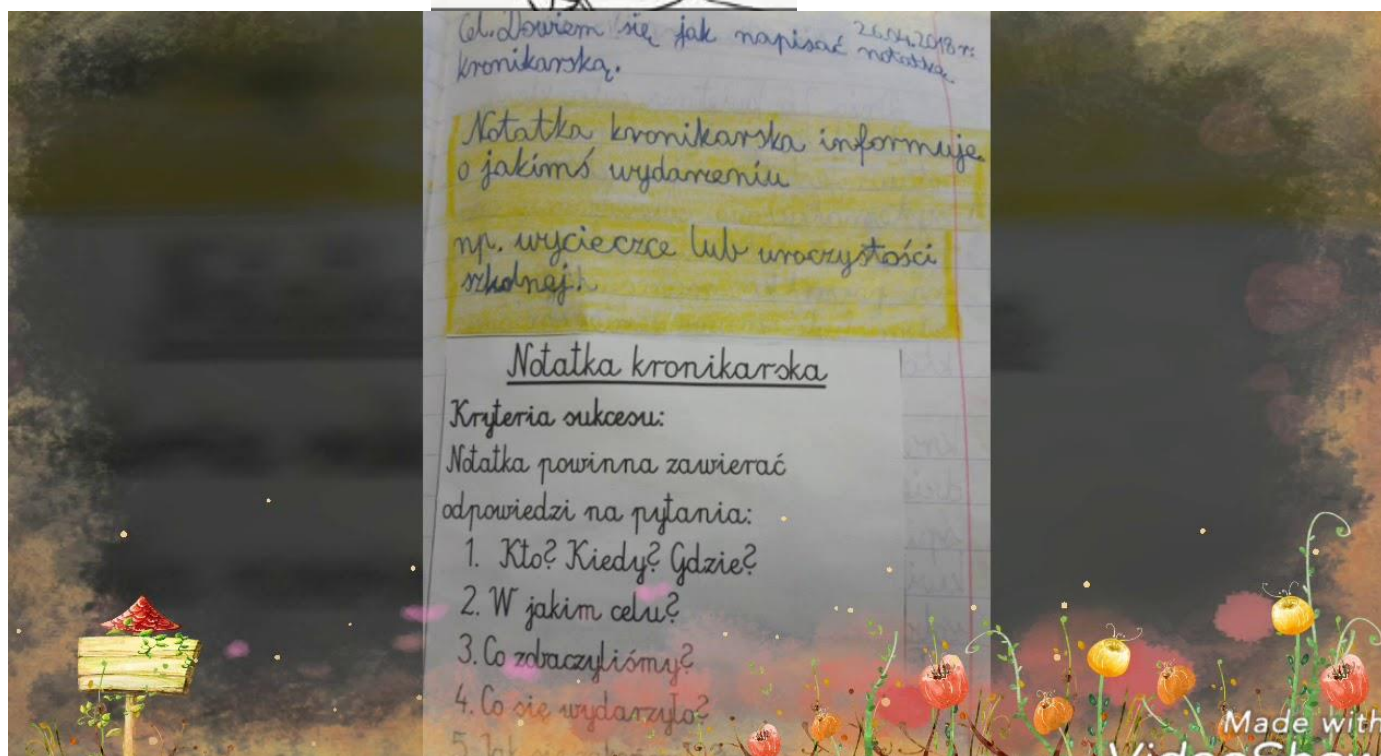 Cel. Dowiem się jak napisać notatkę
26.04.2018 r.
kronikarską.
Notatka kronikarska informuje
o jakimś wydarzeniu
np. wycieczce lub uroczystości
szkolnej.
Notatka kronikarska
Kryteria sukcesu:
Notatka powinna zawierać
odpowiedzi na pytania:
1. Kto? Kiedy? Gdzie?
2. W jakim celu?
3. Co zobaczyliśmy?
4. Co się wydarzyło?
5. Jak
Made with